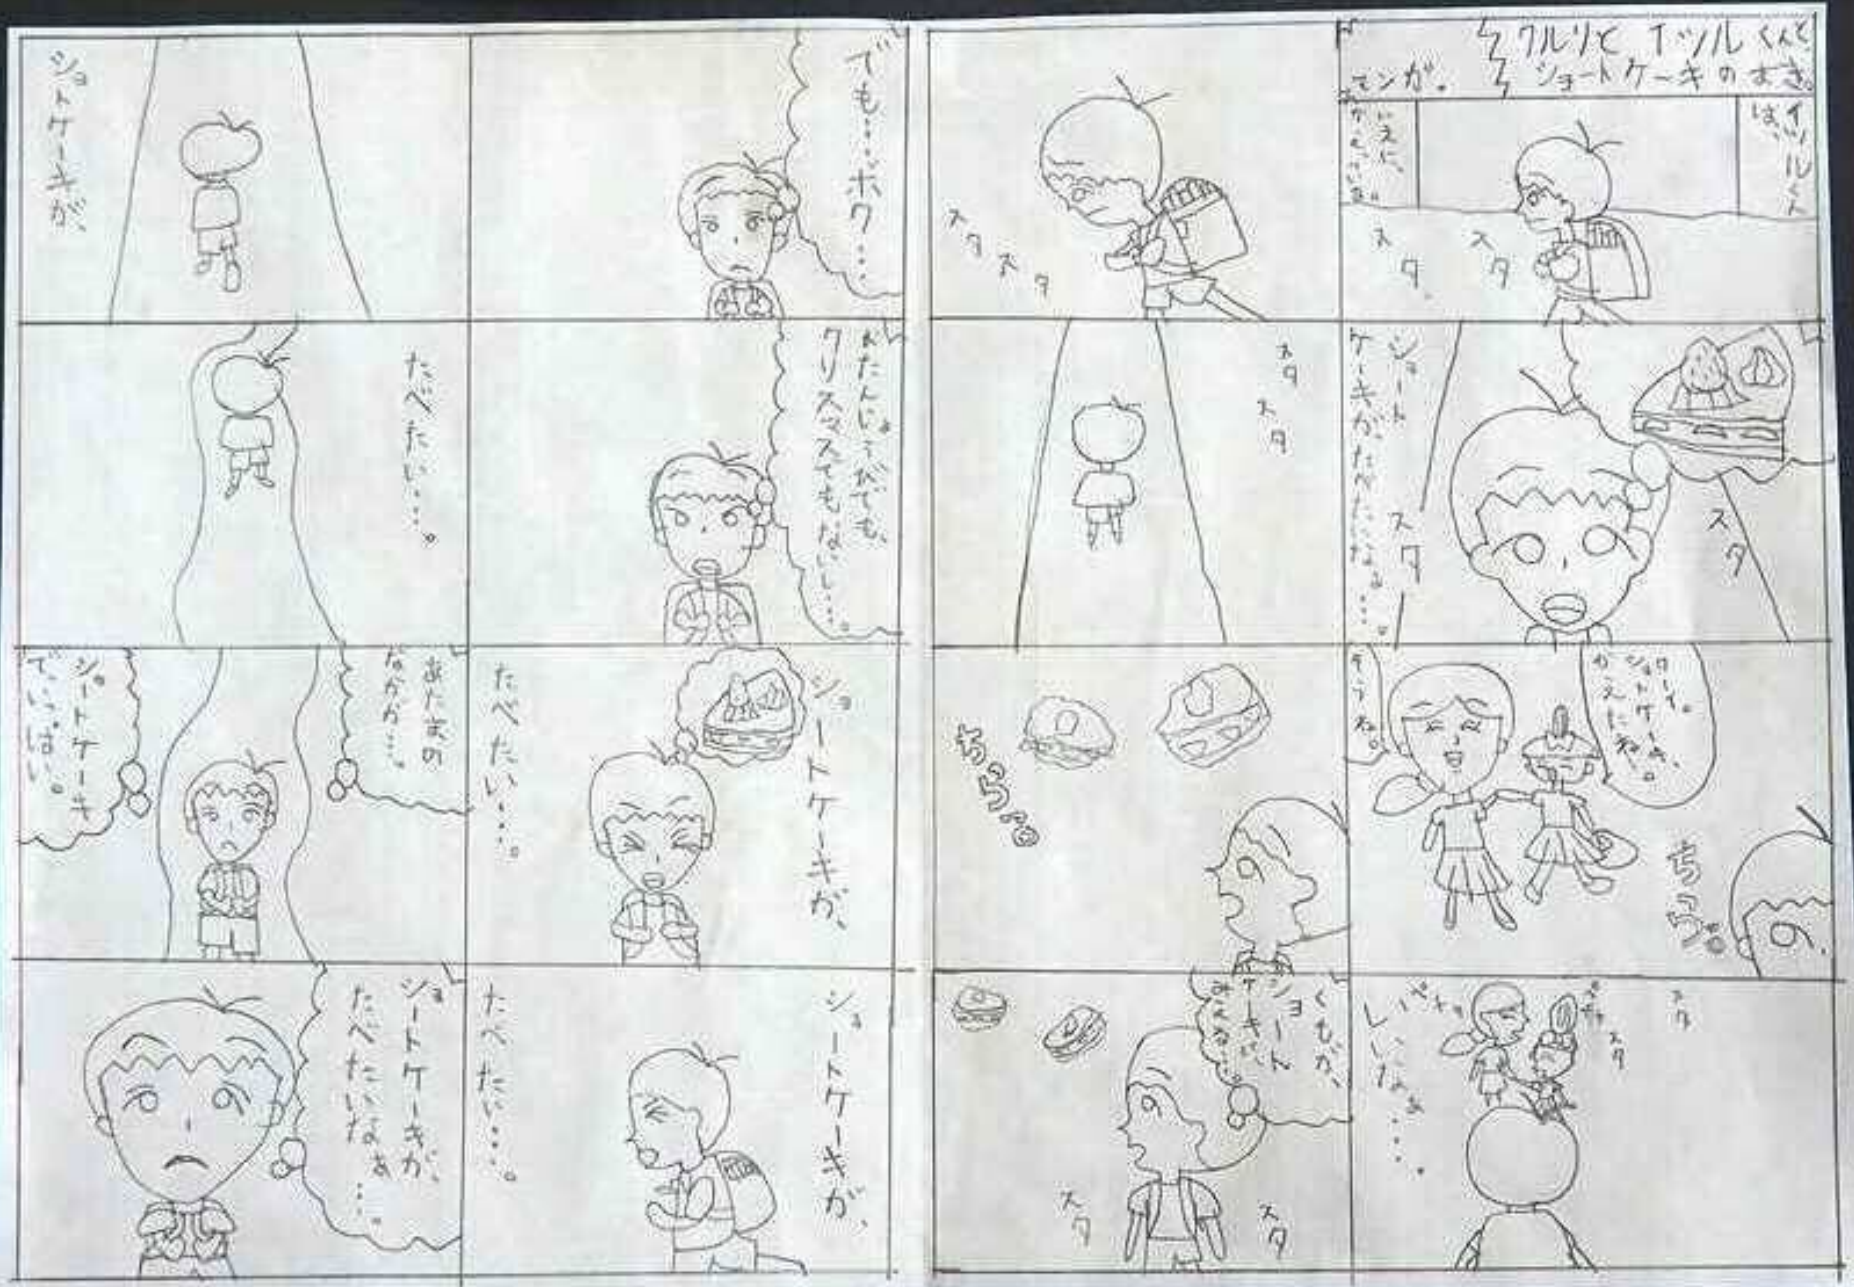 クルリとイツルくんと
ショートケーキのまき。
マンガ。
イツルくん
は、
いえに、
スタ
スタ
スタ
スタ
ショート
ケーキが、たべたいなぁ…。
スタ
スタ
スタ
スタ
わーい。
ショートケーキ、
かえたね。
そうね。
ちらっ。
ちらっ。
スタ
スタ
ペチャ
ペチャ
いいなぁ…。
くもが、
ショート
ケーキに、
みえる…。
スタ
スタ
でも…ボク…
おたんじょうびでも、
クリスマスでもないし…。
ショートケーキが、
たべたい…。
ショートケーキが、
たべたい…。
ショートケーキが、
たべたい…。
あたまの
なかが…。
ショートケーキ
で、いっぱい。
ショートケーキが、
たべたいなぁ…。